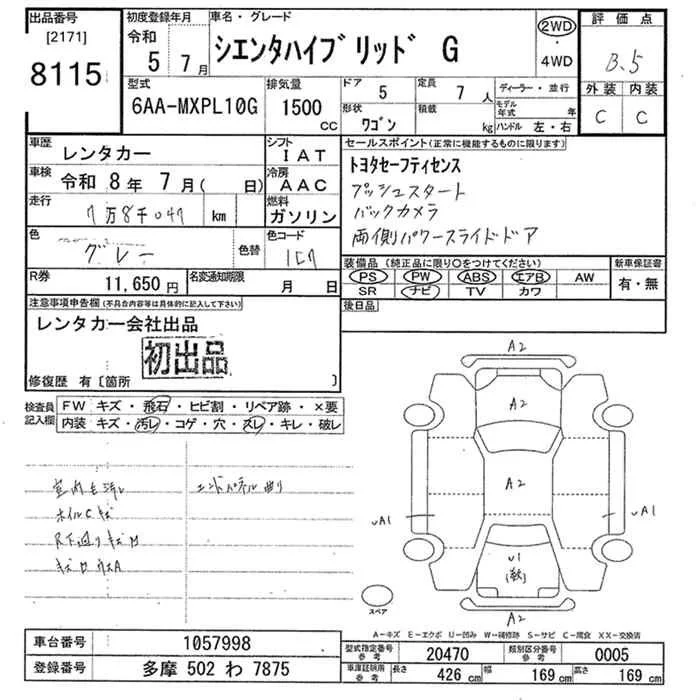 出品番号
[2171]
8115
初度登録年月
令和
5 7月
車名・グレード
シエンタハイブリッド G
2WD
・
4WD
評価点
3.5
外装 内装
C C
型式
6AA-MXPL10G
排気量
1500
CC
ドア
5
定員
7 人
形状
ワゴン
積載
kg
ディーラー・並行
モデル年式 年
ハンドル 左・右
車歴
レンタカー
シフト
IAT
車検
令和 8年 7月( 日)
冷房
AAC
走行
7万8千047 km
燃料
ガソリン
色
グレー
色替
色コード
1C7
R券
11,650 円
名変通知期限
月 日
セールスポイント(正常に機能するものに限ります)
トヨタセーフティセンス
プッシュスタート
バックカメラ
両側パワースライドドア
装備品(純正品に限り○をつけてください)
PS PW ABS エアB AW
SR ナビ TV カワ
新車保証書
有・無
後日品
注意事項申告欄(不具合内容等は具体的に記入して下さい)
レンタカー会社出品
初出品
修復歴 有〔箇所 〕
検査員
記入欄
FW キズ・飛石・ヒビ割・リペア跡・×要
内装 キズ・汚レ・コゲ・穴・スレ・キレ・破レ
室内毛汚レ
ホイルCキズ
R下廻りキズ
エンドパネル曲り
A2
A2
A2
A1
A1
A2
スペア
A−キズ E−エクボ U−凹み W−補修跡 S−サビ C−腐食 XX−交換済
車台番号
1057998
登録番号
多摩 502 わ 7875
型式指定番号
参考
20470
類別区分番号
参考
0005
車庫証明用
参考
長さ
426 cm
幅
169 cm
高さ
169 cm